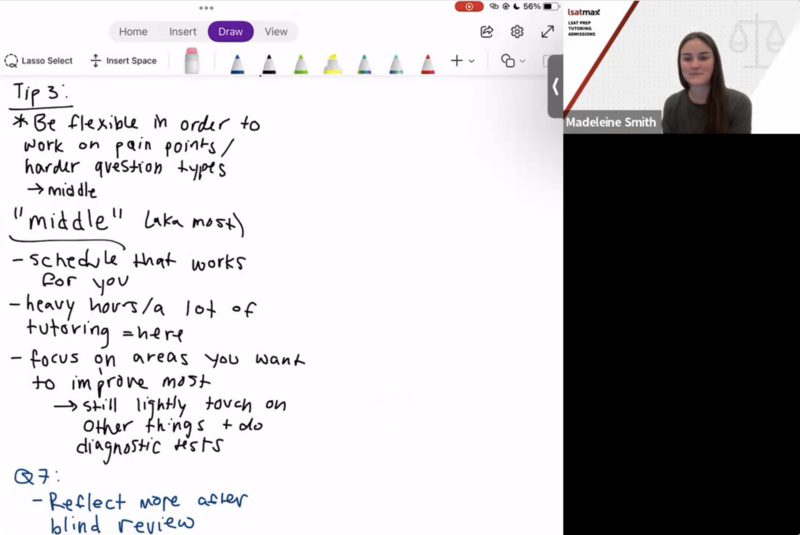 56%
Home Insert Draw View
Lasso Select
Insert Space
Tip 3:
* Be flexible in order to
work on pain points/
harder question types
→ middle
"middle" (aka most)
- schedule that works
for you
- heavy hours/a lot of
tutoring = here
- focus on areas you want
to improve most
→ still lightly touch on
other things + do
diagnostic tests
Q7:
- Reflect more after
blind review
lsatmax
LSAT PREP
TUTORING
ADMISSIONS
Madeleine Smith